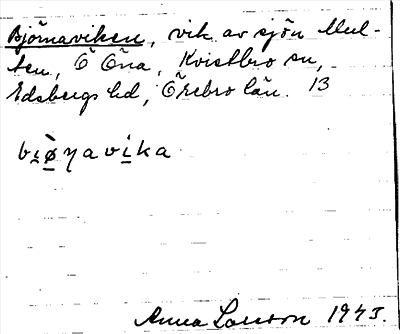 Björnaviken, vik av sjön Mul-
ten, Ö Öna, Kvistbro sn,
Edsbergs hd, Örebro län. 13
bi̯ø̀ɳavika
Anna Larsson 1945.